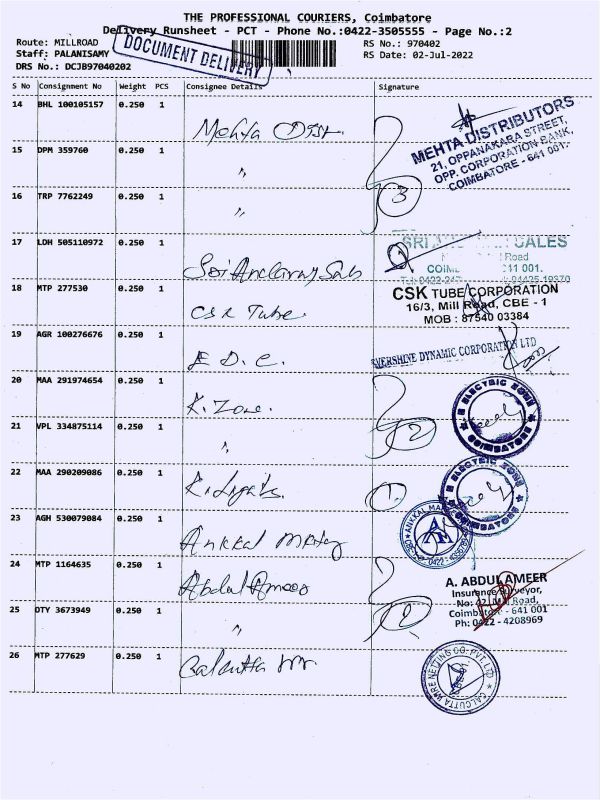 THE PROFESSIONAL COURIERS, Coimbatore
Delivery Runsheet - PCT - Phone No.:0422-3505555 - Page No.:2
Route: MILLROAD
RS No.: 970402
Staff: PALANISAMY
RS Date: 02-Jul-2022
DRS No.: DCJB97040202
DOCUMENT DELIVERY
S No Consignment No Weight PCS Consignee Details Signature
14 BHL 100105157 0.250 1 Mehta Dist.
MEHTA DISTRIBUTORS
21, OPPANAKARA STREET,
OPP. CORPORATION BANK,
COIMBATORE - 641 001.
15 DPM 359760 0.250 1 "
16 TRP 7762249 0.250 1 "
3
17 LDH 505110972 0.250 1
SRI SALES
Road
001.
18 MTP 277530 0.250 1 CSK Tube.
CSK TUBE CORPORATION
16/3, Mill Road, CBE - 1
MOB : 87540 03384
19 AGR 100276676 0.250 1 E D C.
EVERSHINE DYNAMIC CORPORATION LTD
20 MAA 291974654 0.250 1 K. Zone.
ELECTRIC ZONE
COIMBATORE
21 VPL 334875114 0.250 1 "
2
22 MAA 290209086 0.250 1
1
ELECTRIC ZONE
COIMBATORE
23 AGH 530079084 0.250 1 Ankkal
ANKKAL
AM
24 MTP 1164635 0.250 1 Abdul Ameer
A. ABDUL AMEER
Insurance Surveyor,
No: 42, Mill Road,
Coimbatore - 641 001
Ph: 0422 - 4208969
25 DTY 3673949 0.250 1 "
2
26 MTP 277629 0.250 1 Calcutta
CALCUTTA WIRE NETTING CO. PVT. LTD